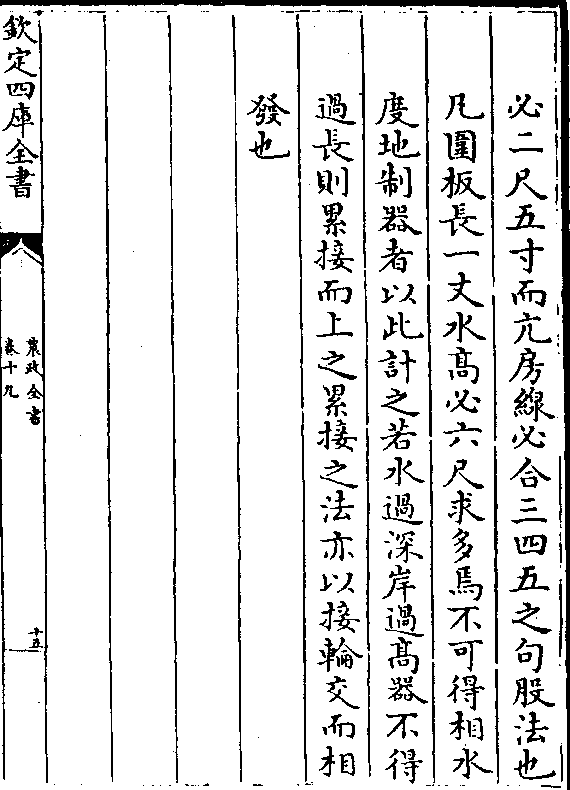 必二尺五寸而亢房線必合三四五之句股法也
凡圍板長一丈水髙必六尺求多焉不可得相水
度地制器者以此計之若水過深岸過髙器不得
過長則累接而上之累接之法亦以接輪交而相
發也
欽定四庫全書
農政全書
卷十九
十五